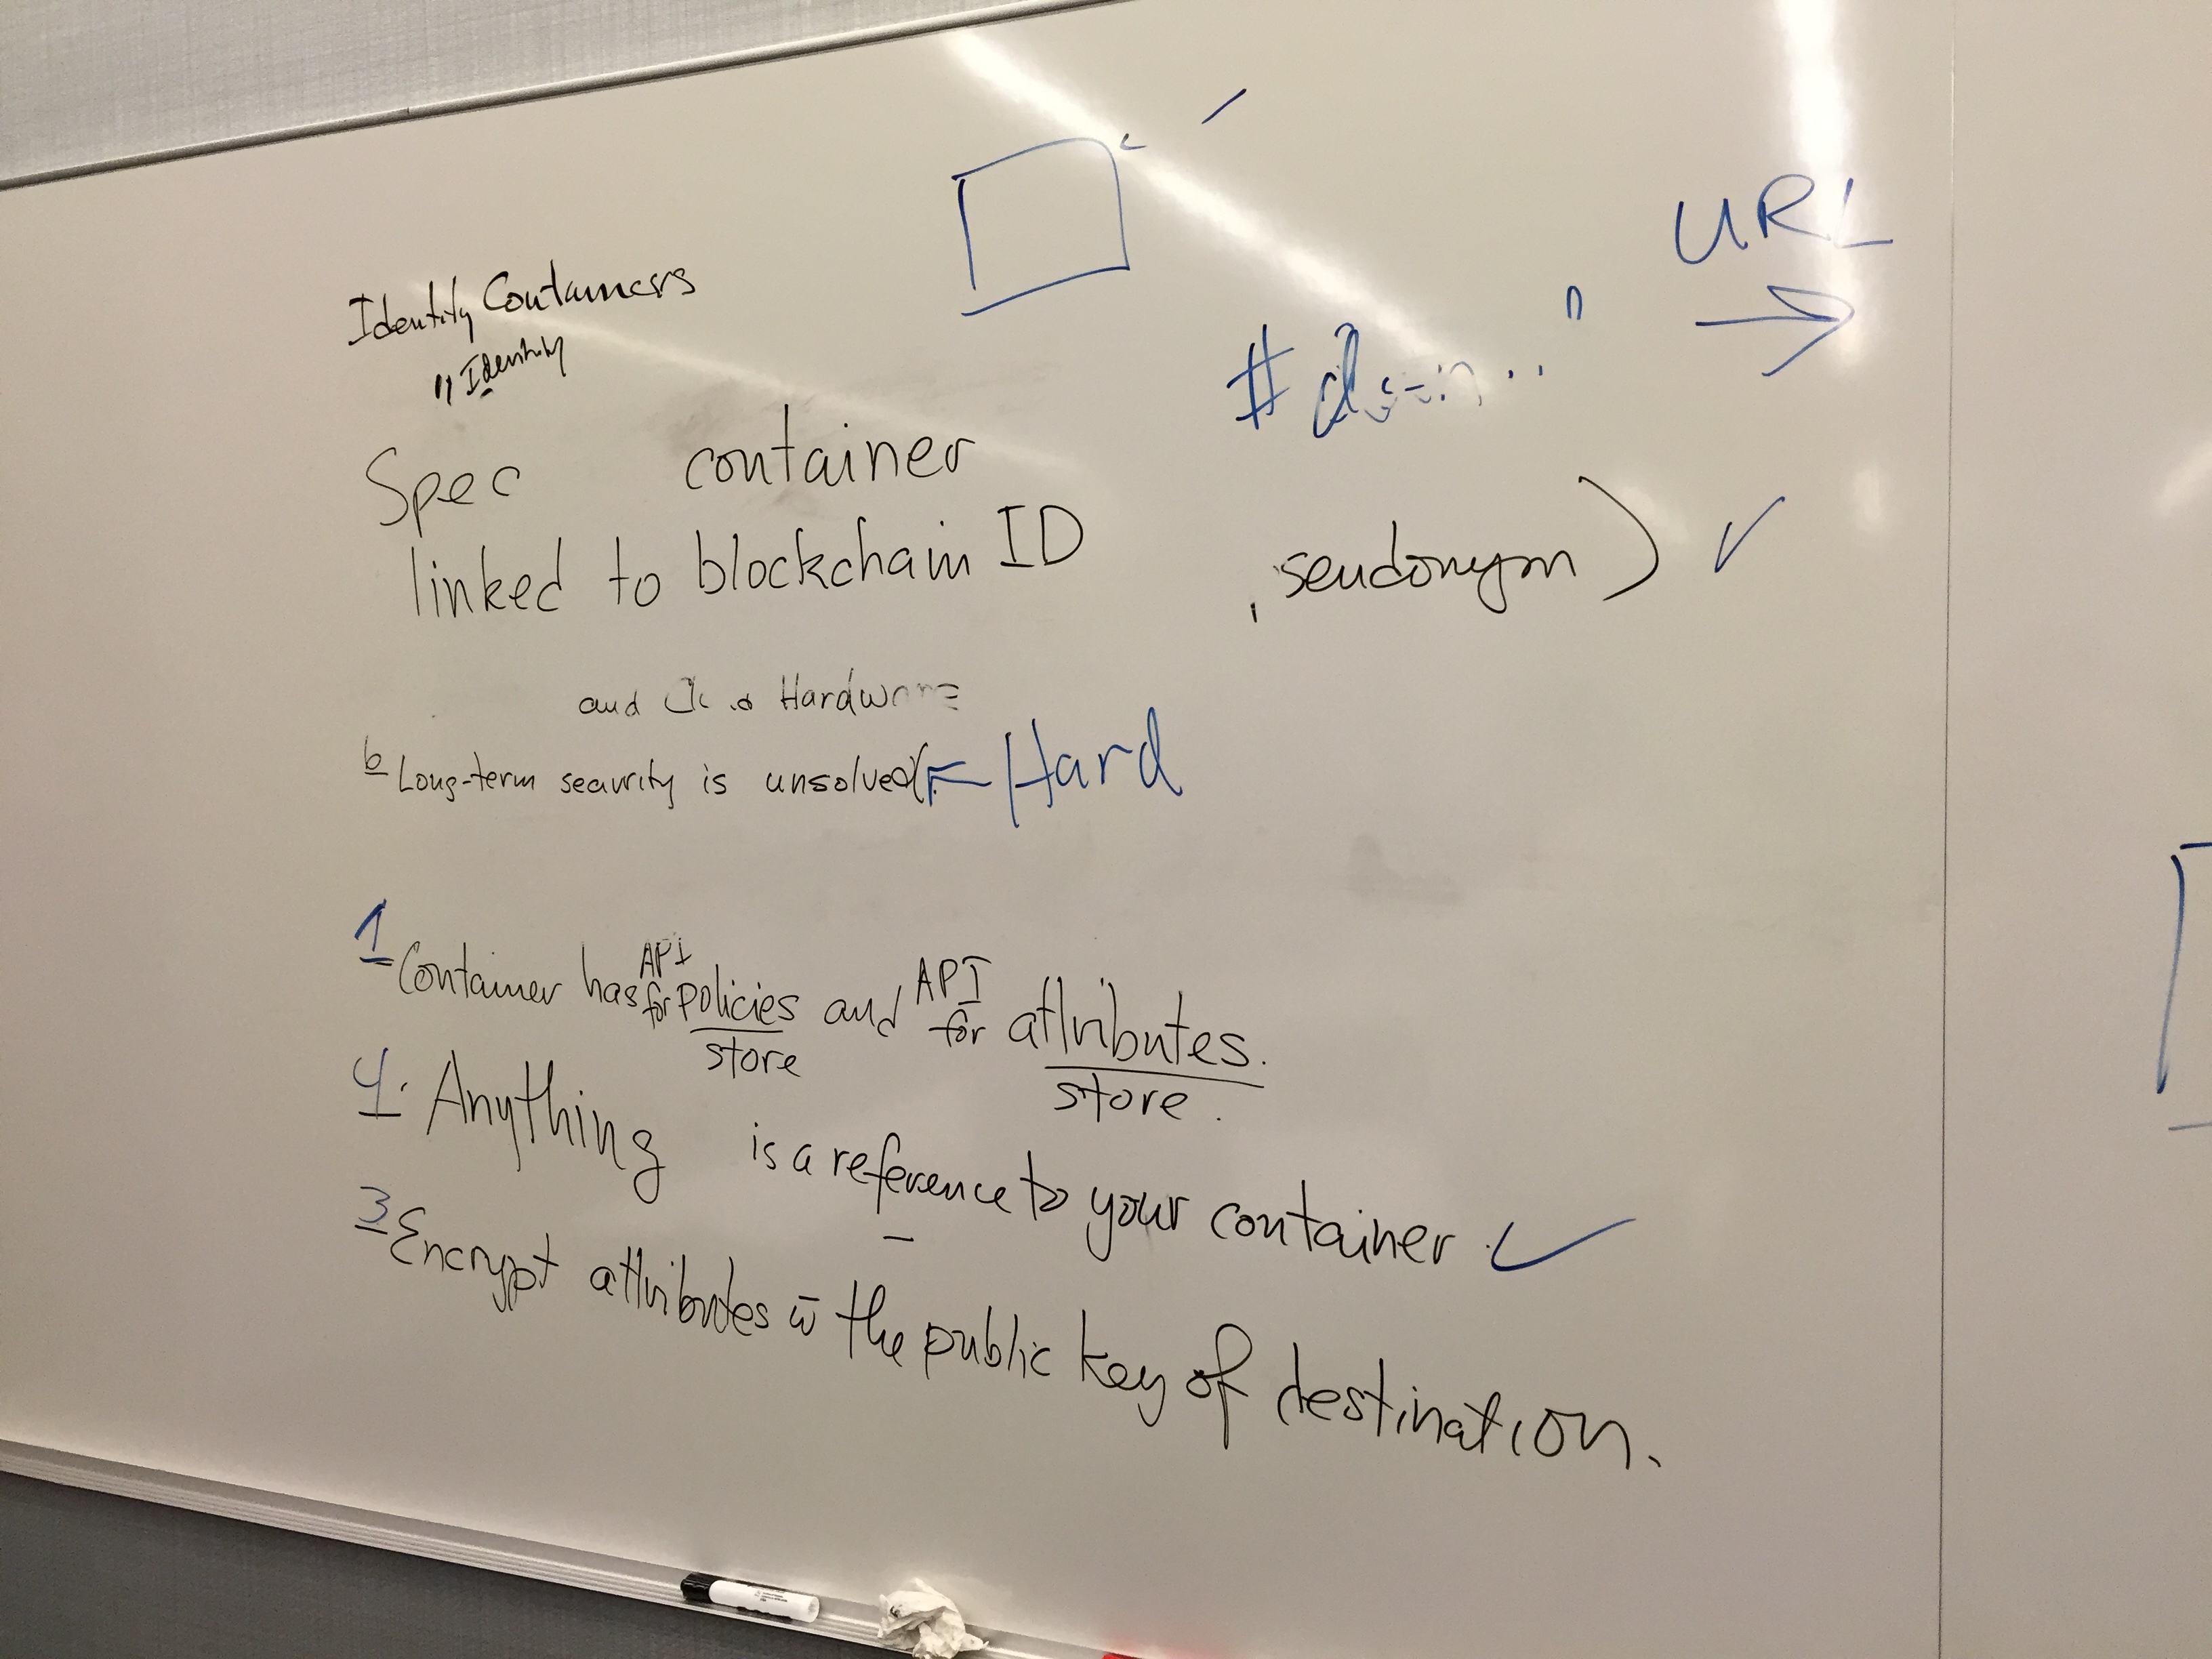 URL
Identity Containers
" Identity
Spec container
linked to blockchain ID
seudonym) ✓
and Hardware
6 Long-term security is unsolved ← Hard
1 Container has API for policies store and API for attributes. store.
4. Anything is a reference to your container. ✓
3 Encrypt attributes w̄ the public key of destination.